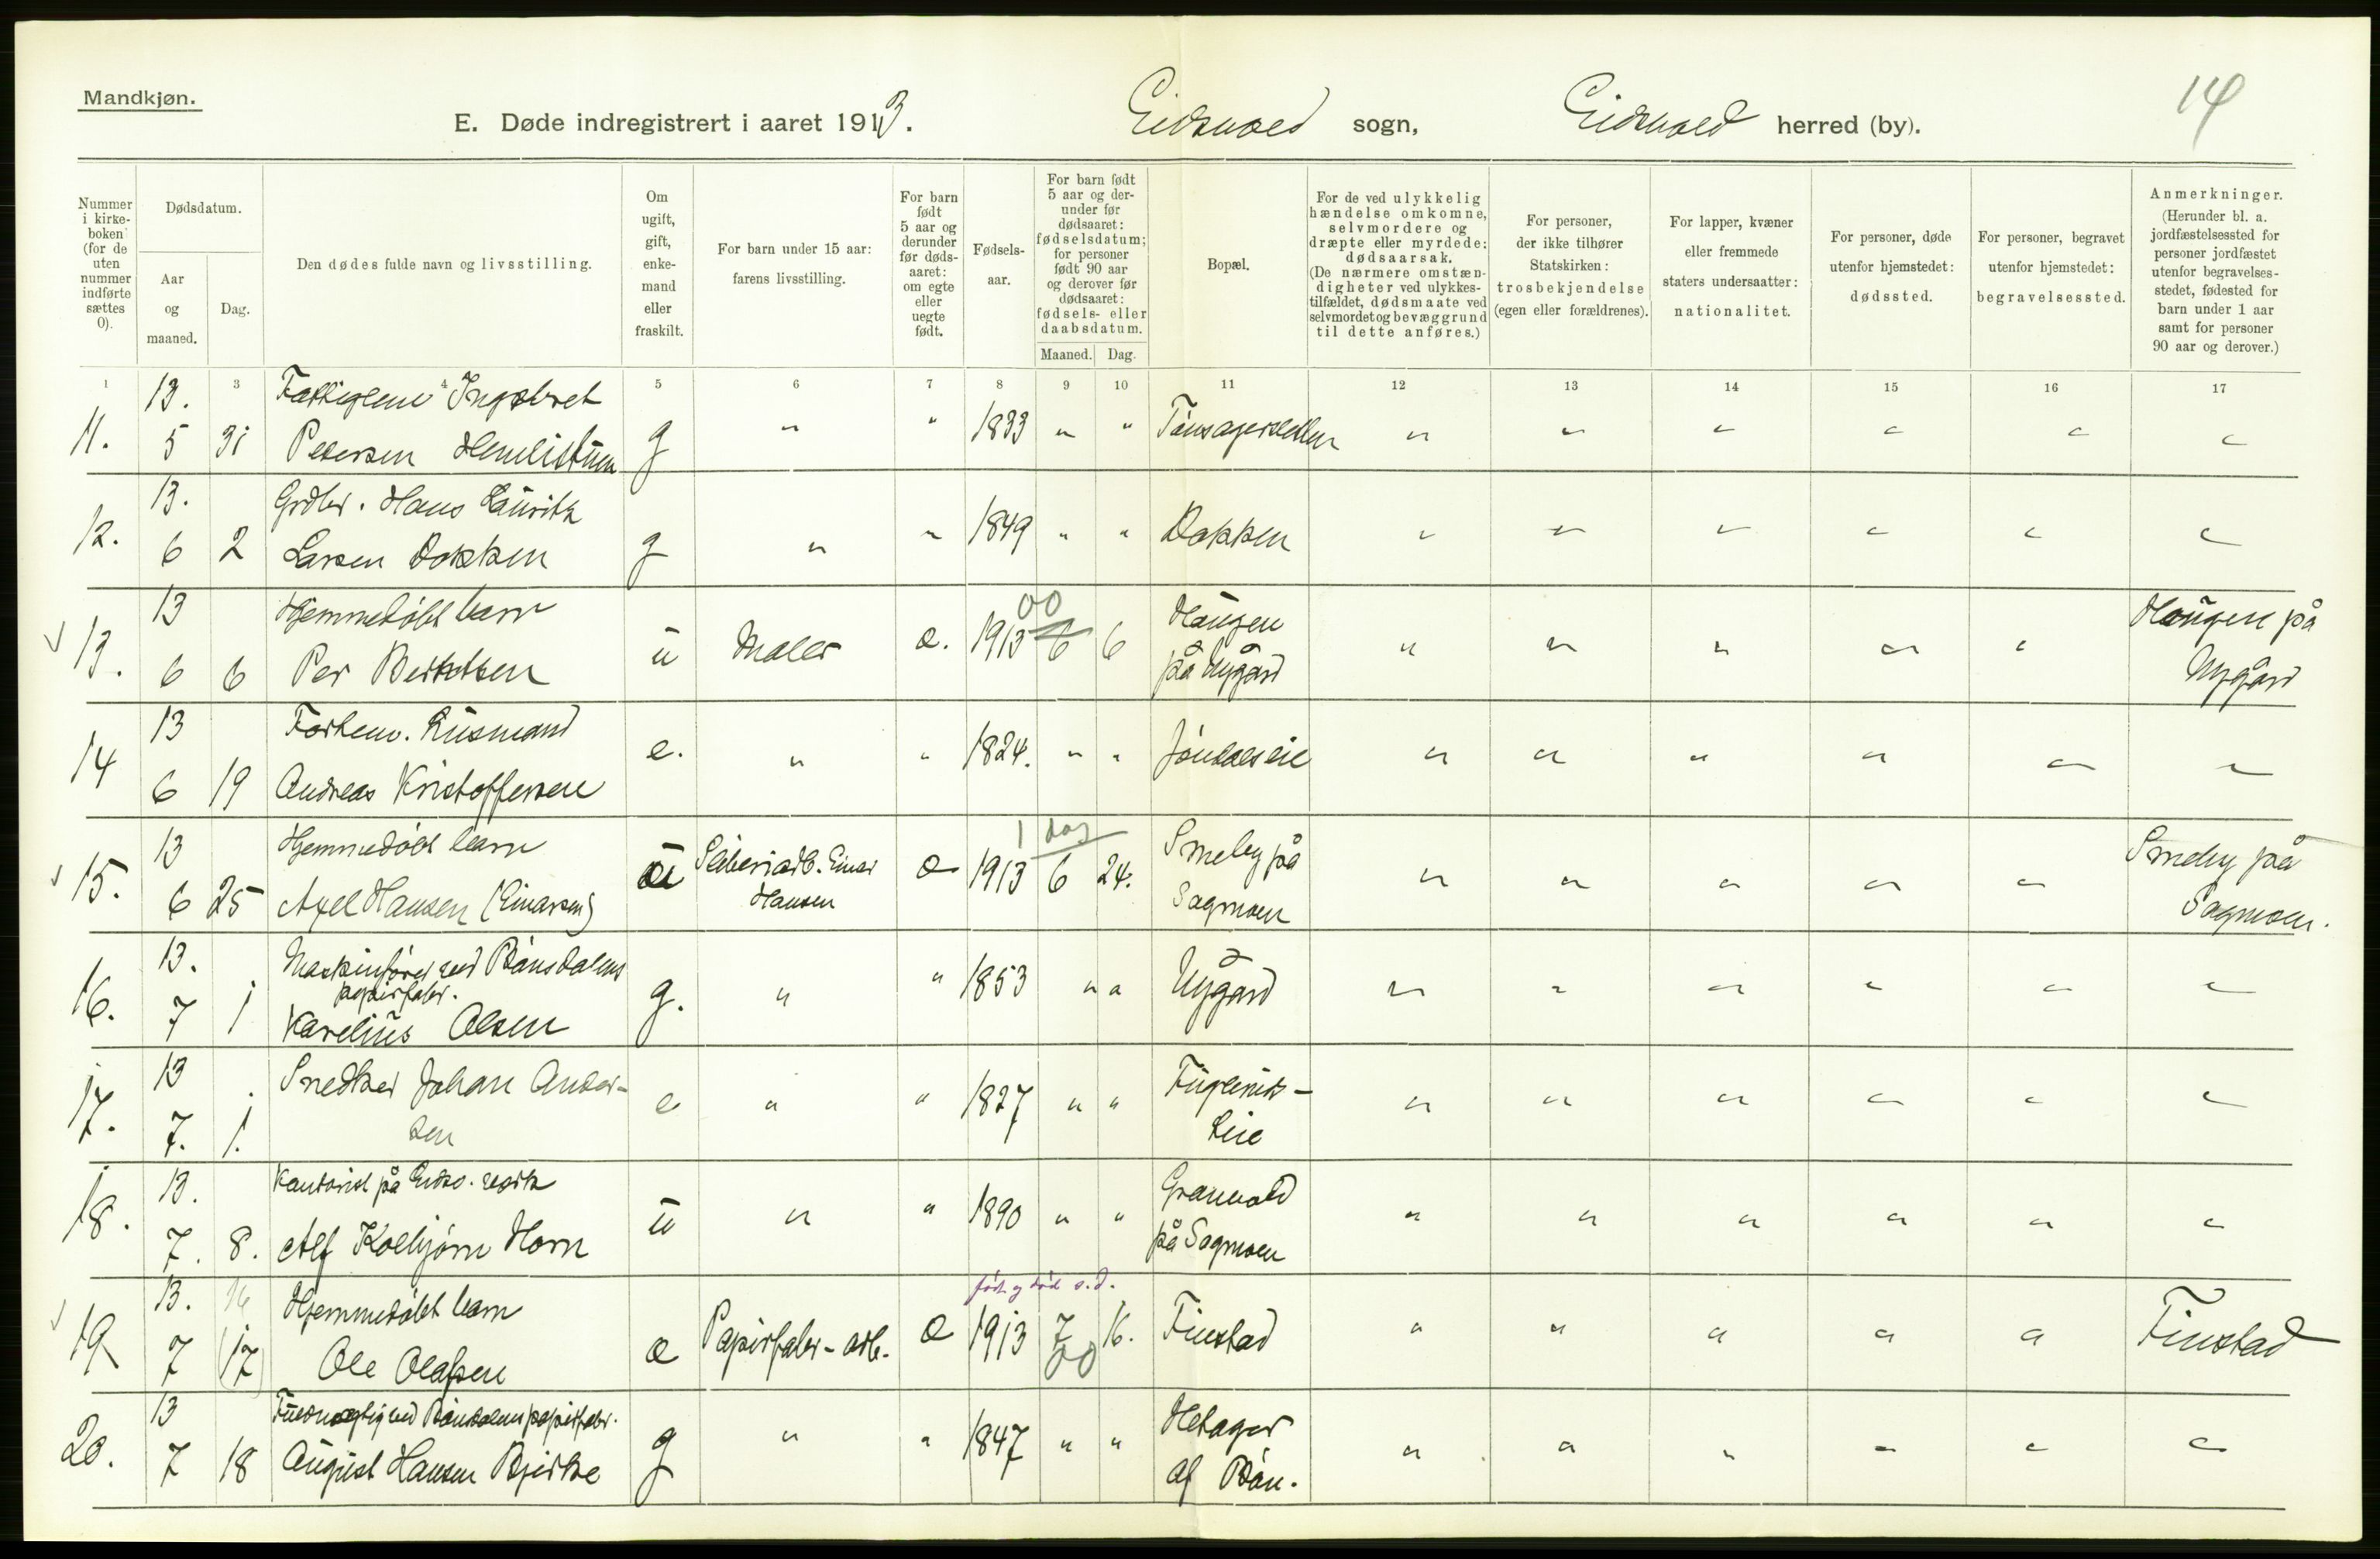 Mandkjøn.
14
E. Døde indregistrert i aaret 1913. Eidsvold sogn, Eidsvold herred (by).
Nummer i kirke- boken (for de uten nummer indførte sættes 0).
Dødsdatum.
Aar og maaned.
Dag.
Den dødes fulde navn og livsstilling.
Om ugift, gift, enke- mand eller fraskilt.
For barn under 15 aar: farens livsstilling.
For barn født 5 aar og derunder før døds- aaret: om egte eller uegte født.
Fødsels- aar.
For barn født 5 aar og der- under før dødsaaret: fødselsdatum; for personer født 90 aar og derover før dødsaaret: fødsels- eller daabsdatum.
Maaned. Dag.
Bopæl.
For de ved ulykkelig hændelse omkomne, selvmordere og dræpte eller myrdede: dødsaarsak. (De nærmere omstæn- digheter ved ulykkes- tilfældet, dødsmaate ved selvmordet og bevæggrund til dette anføres.)
For personer, der ikke tilhører Statskirken: trosbekjendelse (egen eller forældrenes).
For lapper, kvæner eller fremmede staters undersaatter: nationalitet.
For personer, døde utenfor hjemstedet: dødssted.
For personer, begravet utenfor hjemstedet: begravelsessted.
Anmerkninger. (Herunder bl. a. jordfæstelsessted for personer jordfæstet utenfor begravelses- stedet, fødested for barn under 1 aar samt for personer 90 aar og derover.)
1 3 4 5 6 7 8 9 10 11 12 13 14 15 16 17
13. Fattiglem Ingebret
11. 5 31 Petersen Hemlistuen g " " 1833 " " " " " " " "
13. Grdbr. Hans Lauritz
12. 6 2 Larsen Dokken g " " 1849 " " Dokken " " " " " "
13 Hjemmedøbt barn 00 Haugen Haugen på
13. 6 6 Per Berntsen u Maler e. 1913 6 6 på Nygård " " " " " Nygård
13 Forhenv. Husmand
14 6 19 Andreas Kristoffersen e. " " 1824. " " Jøndalseie " " " " " "
13 Hjemmedøbt barn 1 dag Smeby på Smeby på
15. 6 25 Axel Hansen (Einarsen) u Sliberiarb. Einar Hansen e 1913 6 24. Sagmoen " " " " " Sagmoen.
13. Maskinfører ved Bønsdalens papirfabr.
16. 7 1 Karelius Olsen g. " " 1853 " " Nygård " " " " " "
13 Snedker Johan Ander-
17. 7. 1. sen e " " 1827 " " " " " " " "
13. Kontorist på Eidsv. værk Granvold
18. 7. 8. Alf Kolbjørn Horn u " " 1890 " " på Sagmoen " " " " " "
13. 16 Hjemmedøbt barn født og død s. d.
19 7 (17) Ole Olafsen e Papirfabr-arb. e 1913 7 16. Finstad " " " " " Finstad
00
13 Fuldmægtig ved Bønsdalens papirfabr. Hetager
20. 7 18 August Hansen Bjerke g " " 1847 " " af Bøn. " " " " " "